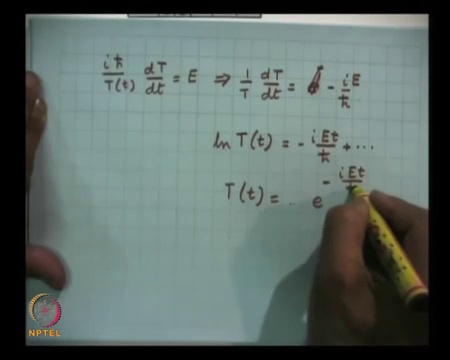 iħ/T(t) dT/dt = E ⇒ 1/T dT/dt = - iE/ħ
ln T(t) = - iEt/ħ + ...
T(t) = . e^(- iEt/ħ)
NPTEL